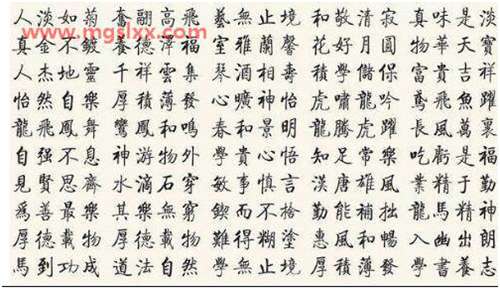 www.mgslxx.com
人淡如菊 奮翮高飛 藝無止境 和敬清寂 真味是淡
真金不鍍 養德澤福 室雅蘭馨 花好月圓 物華天寶
人杰地靈 千祥雲集 富貴吉祥
怡然自樂 厚積薄發 心曠神怡 虎嘯龍吟 鳶飛魚躍
龍飛鳳舞 鸞鳳和鳴 春和景明 龍騰虎躍 長風萬裏
自强不息 神游物外 學貴心悟 知足常樂 吃虧是福
見賢思齊 水滴石穿 敏事慎言 漢唐雄風 業精于勤
爲善最樂 其樂無窮 鍥而不捨 勤能補拙 龍馬精神
厚德載物 難得糊塗 惠風和暢 入幽出朗
馬到功成 道法自然 學無止境 厚積薄發 學書養志